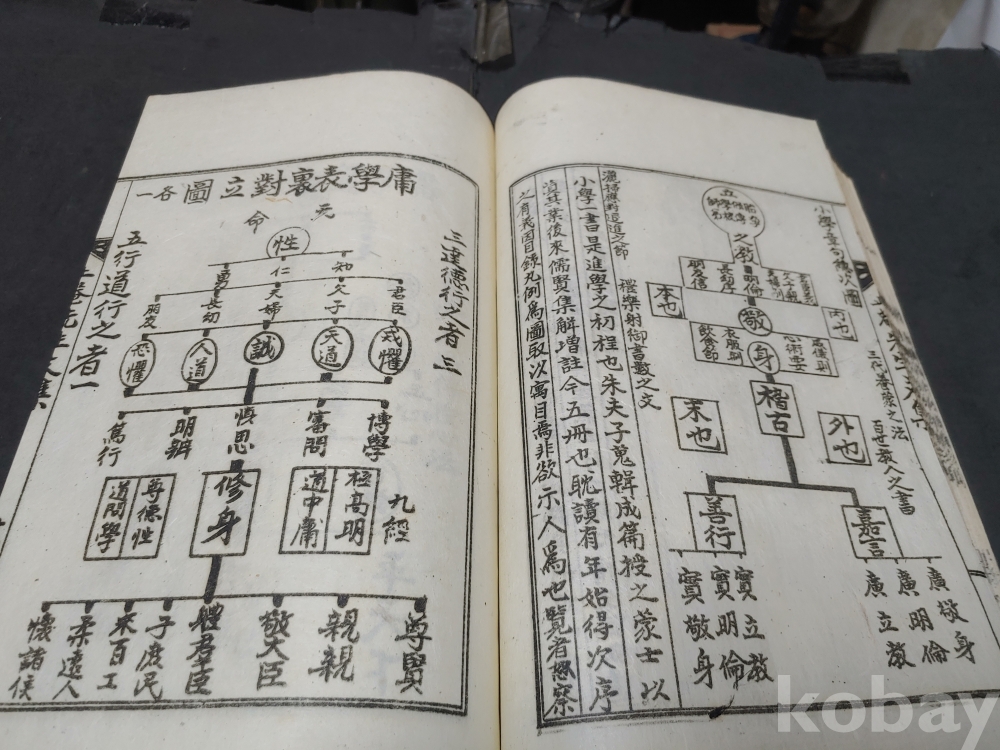 小學章句維次圖
之教
明倫
朋友信
長幼序
敬
本也
內也
身
心術要
飲食節
衣服制
三代養蒙之法
百世敎人之書
稽古
末也
外也
善行
嘉言
實立敎
實明倫
實敬身
廣敬身
廣明倫
廣立敎
灑掃應對進退之節
禮樂射御書數之文
小學一書是進學之初程也朱夫子蒐輯成篇授之蒙士以
其業後來儒賢集解增註今五冊也耽讀有年始得次序
之有義因目錄凡例爲圖取以寓目焉非欲示人爲也覽者恕察
庸學表裏對立圖各一
天命
性
三達德行之者三
知
仁
勇
君臣
父子
夫婦
長幼
朋友
戒懼
天道
誠
人道
恐懼
五行道行之者一
博學
審問
愼思
明辨
篤行
九經
極高明
道中庸
修身
尊德性
道問學
尊賢
親親
敬大臣
體羣臣
子庶民
來百工
柔遠人
懷諸侯
kobay